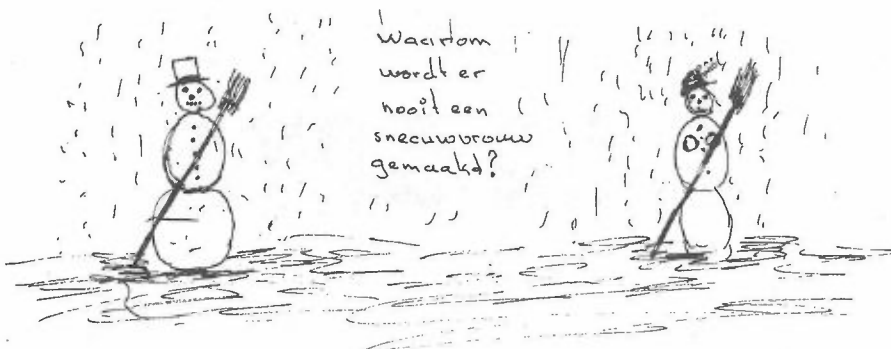 Waarom
wordt er
nooit een
sneeuwvrouw
gemaakd?